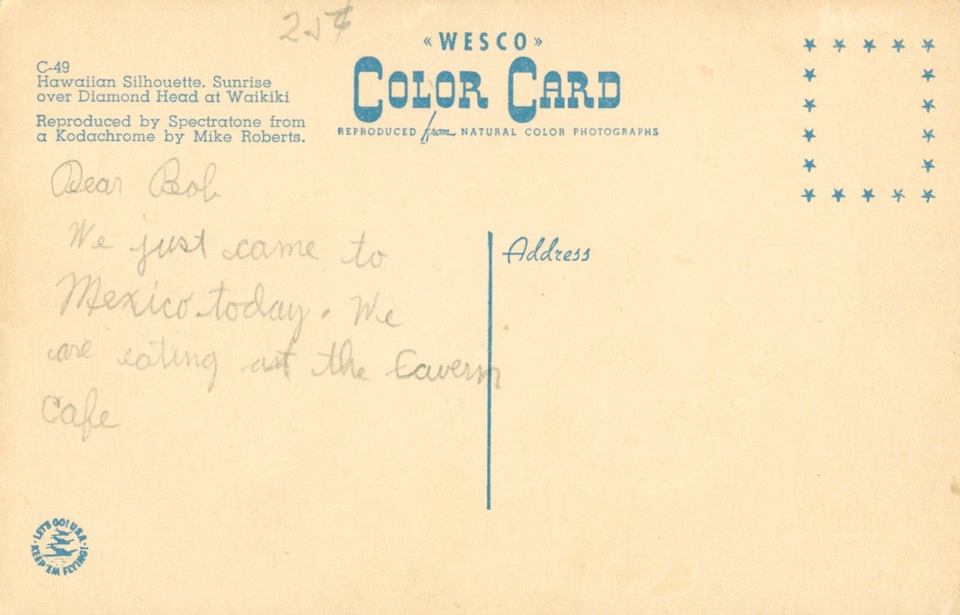 25¢
« WESCO »
COLOR CARD
REPRODUCED from NATURAL COLOR PHOTOGRAPHS
C-49
Hawaiian Silhouette. Sunrise
over Diamond Head at Waikiki
Reproduced by Spectratone from
a Kodachrome by Mike Roberts.
Dear Bob
We just came to
Mexico today. We
are eating at the Cavern
Cafe
Address
· LET'S GO! U.S.A. ·
KEEP 'EM FLYING!